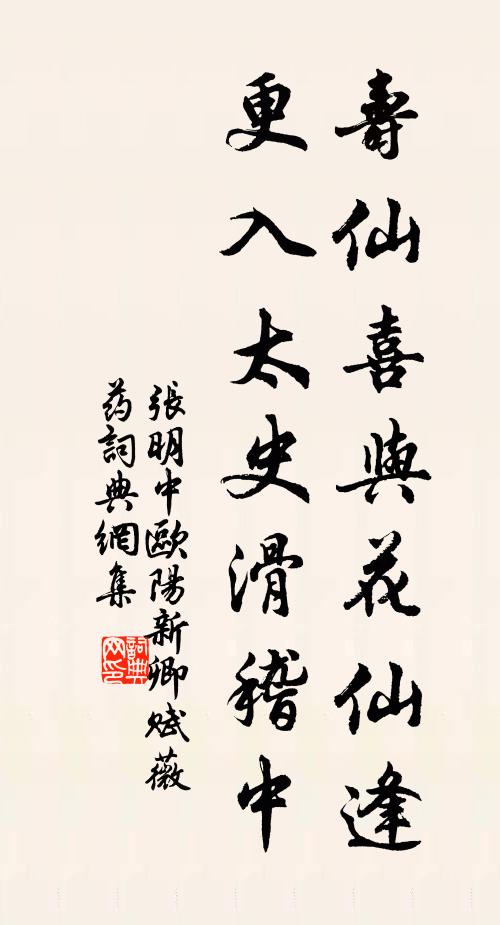 壽仙喜與花仙逢
更入太史滑稽中
張明中歐陽新卿賦薇
药詞典網集
詞典網印